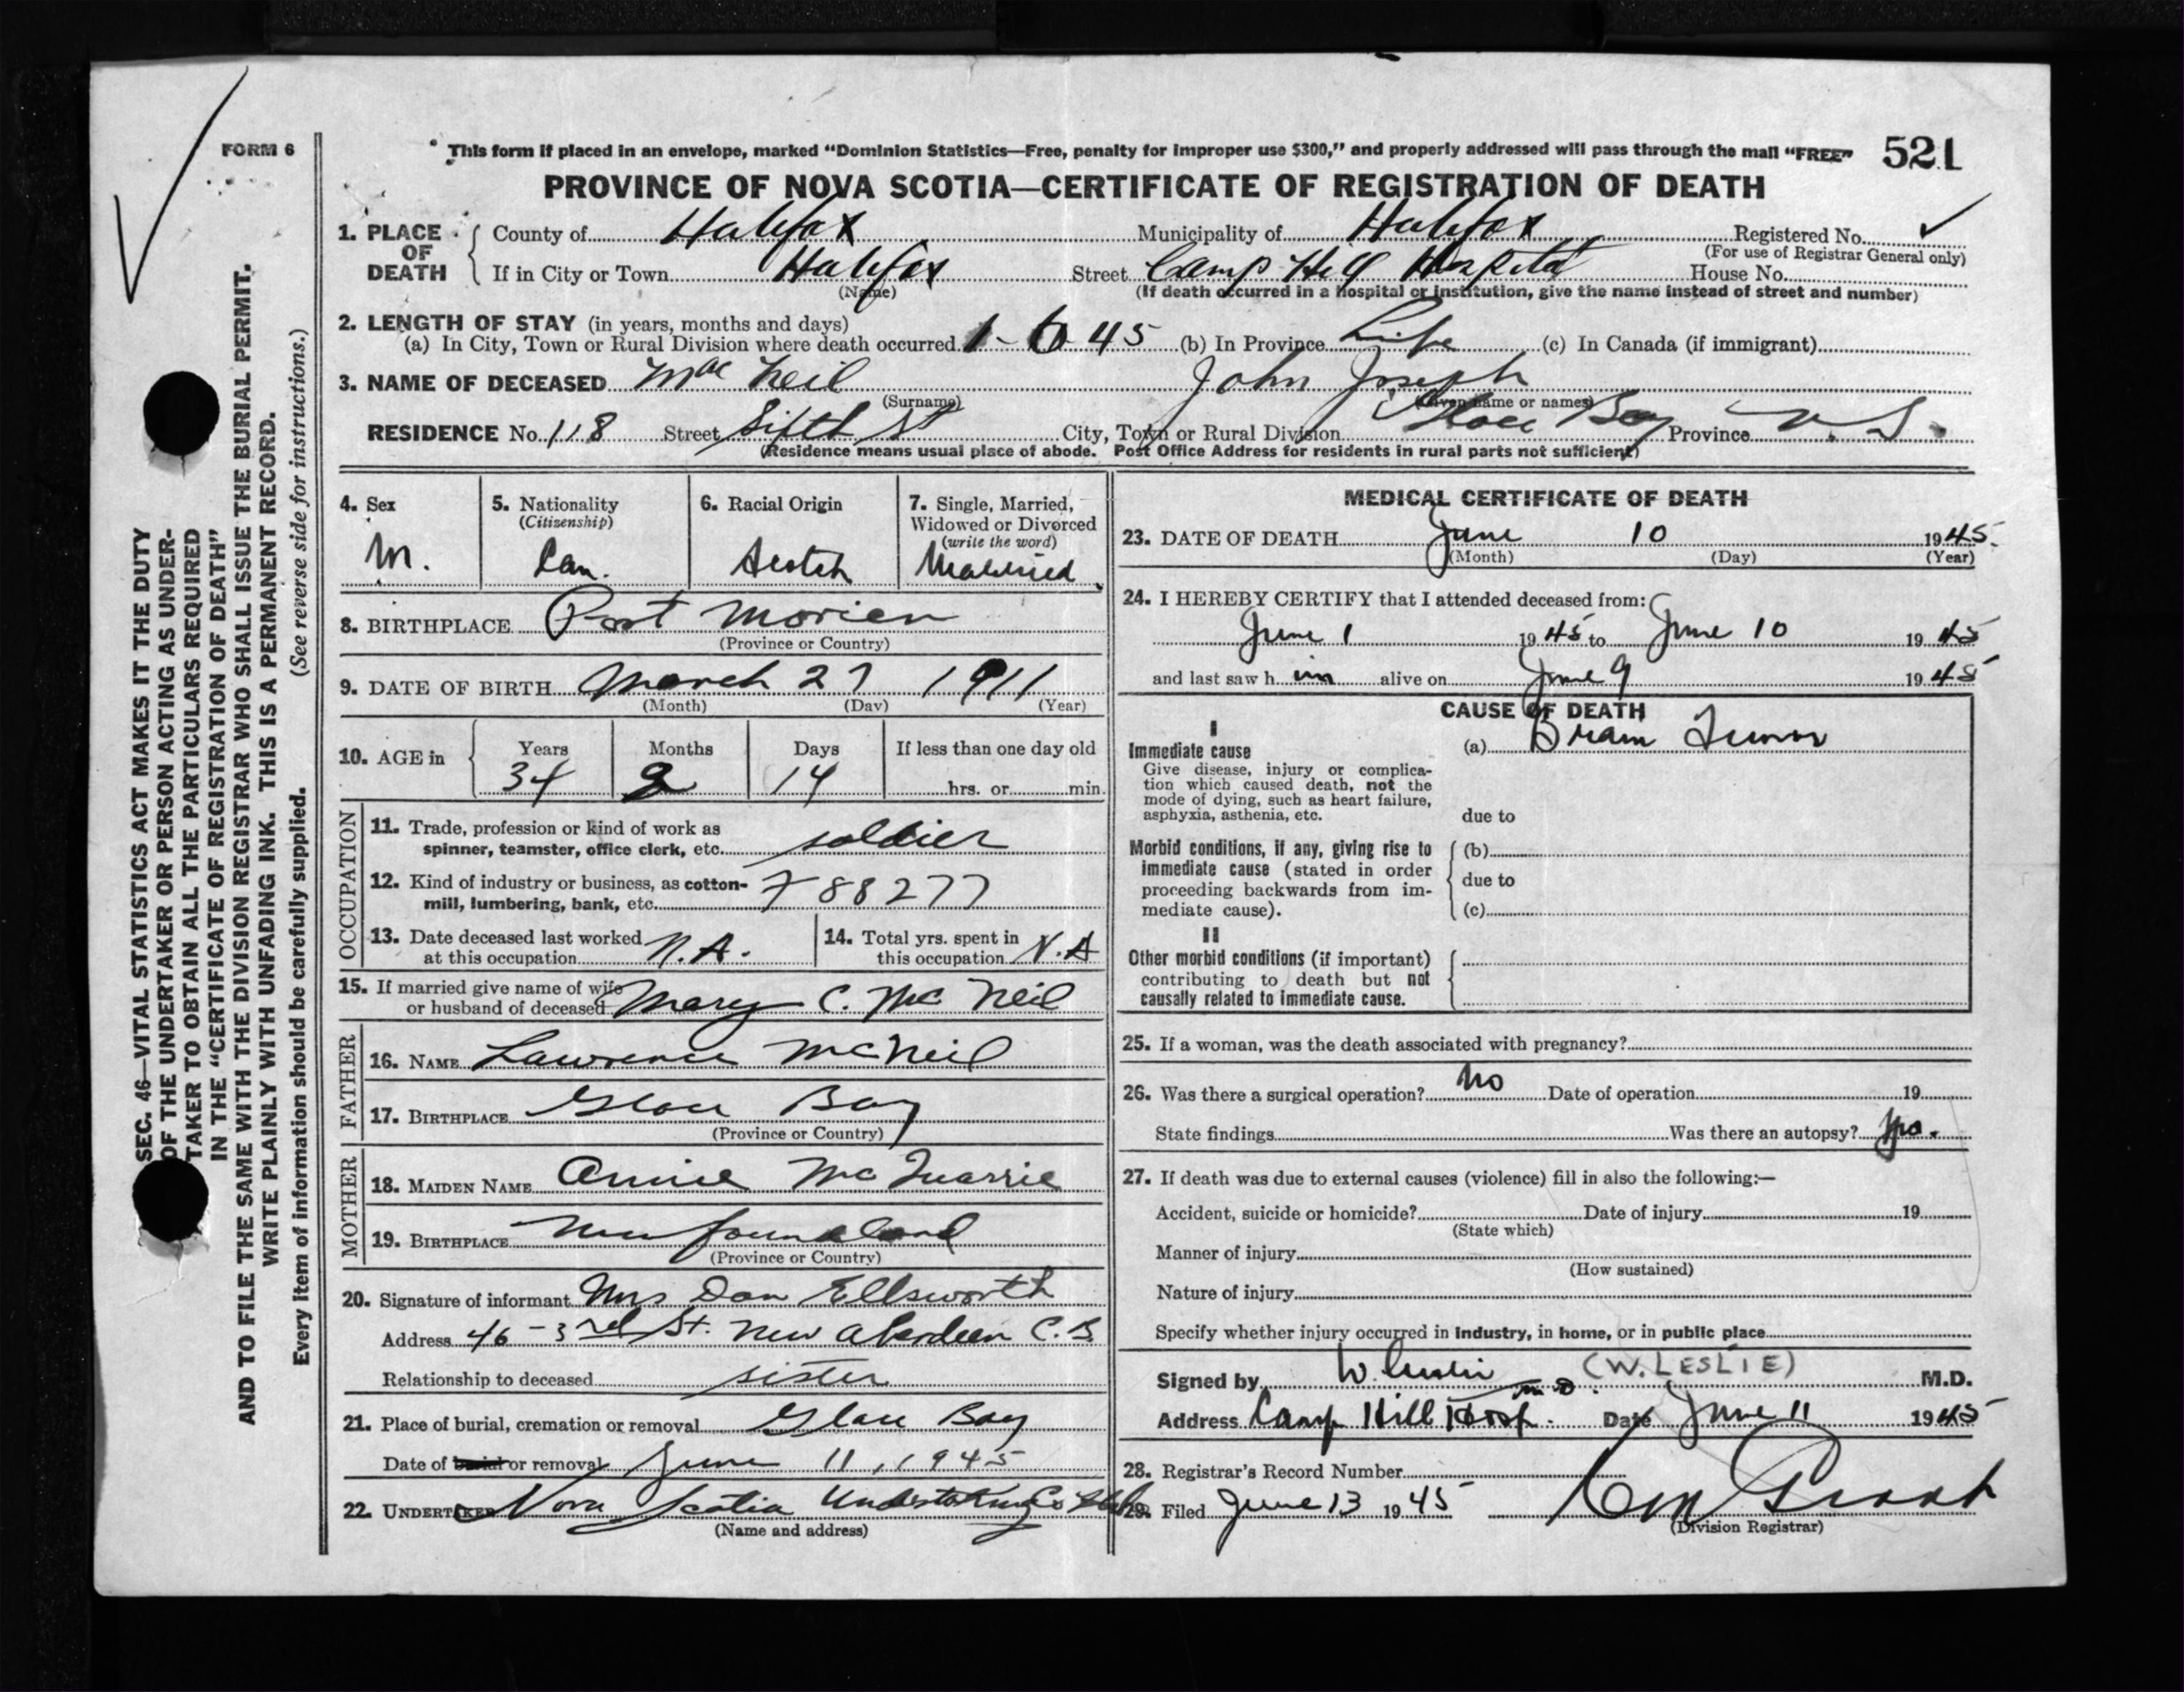 FORM 6
This form if placed in an envelope, marked "Dominion Statistics—Free, penalty for improper use $300," and properly addressed will pass through the mail "FREE" 521
PROVINCE OF NOVA SCOTIA—CERTIFICATE OF REGISTRATION OF DEATH
1. PLACE OF DEATH County of Halifax Municipality of Halifax Registered No.
(For use of Registrar General only)
If in City or Town Halifax Street Camp Hill Hospital House No.
(Name) (If death occurred in a hospital or institution, give the name instead of street and number)
2. LENGTH OF STAY (in years, months and days)
(a) In City, Town or Rural Division where death occurred 1-6-45 (b) In Province Life (c) In Canada (if immigrant)
3. NAME OF DECEASED Mac Neil John Joseph
(Surname) (Given name or names)
RESIDENCE No. 118 Street Sixth St City, Town or Rural Division Glace Bay Province N.S.
(Residence means usual place of abode. Post Office Address for residents in rural parts not sufficient)
4. Sex M.
5. Nationality (Citizenship) Can.
6. Racial Origin Scotch
7. Single, Married, Widowed or Divorced (write the word) Married
8. BIRTHPLACE Port Morien
(Province or Country)
9. DATE OF BIRTH March 27 1911
(Month) (Day) (Year)
10. AGE in Years 34 Months 2 Days 14 If less than one day old hrs. or min.
OCCUPATION
11. Trade, profession or kind of work as
spinner, teamster, office clerk, etc. soldier
12. Kind of industry or business, as cotton-
mill, lumbering, bank, etc. F 88277
13. Date deceased last worked
at this occupation N.A.
14. Total yrs. spent in
this occupation N.A
15. If married give name of wife
or husband of deceased Mary C. Mc Neil
FATHER
16. NAME Lawrence McNeil
17. BIRTHPLACE Glace Bay
(Province or Country)
MOTHER
18. MAIDEN NAME Annie McQuarrie
19. BIRTHPLACE Newfoundland
(Province or Country)
20. Signature of informant Mrs Dan Ellsworth
Address 46 - 3rd St. New Aberdeen C.B.
Relationship to deceased sister
21. Place of burial, cremation or removal Glace Bay
Date of burial or removal June 11, 1945
22. UNDERTAKER Nova Scotia Undertaking Co
(Name and address)
MEDICAL CERTIFICATE OF DEATH
23. DATE OF DEATH June 10 1945.
(Month) (Day) (Year)
24. I HEREBY CERTIFY that I attended deceased from:
June 1 1945 to June 10 1945
and last saw h im alive on June 9 1945
CAUSE OF DEATH
I
Immediate cause (a) Brain Tumor
Give disease, injury or complica-
tion which caused death, not the
mode of dying, such as heart failure,
asphyxia, asthenia, etc. due to
Morbid conditions, if any, giving rise to (b)
immediate cause (stated in order
proceeding backwards from im- due to
mediate cause). (c)
II
Other morbid conditions (if important)
contributing to death but not
causally related to immediate cause.
25. If a woman, was the death associated with pregnancy?
26. Was there a surgical operation? No Date of operation 19
State findings Was there an autopsy? No.
27. If death was due to external causes (violence) fill in also the following:—
Accident, suicide or homicide? Date of injury 19
(State which)
Manner of injury
(How sustained)
Nature of injury
Specify whether injury occurred in industry, in home, or in public place
Signed by W. Leslie M.D. (W. LESLIE) M.D.
Address Camp Hill Hosp. Date June 11 1945
28. Registrar's Record Number
29. Filed June 13 1945
(Division Registrar)
SEC. 46—VITAL STATISTICS ACT MAKES IT THE DUTY
OF THE UNDERTAKER OR PERSON ACTING AS UNDER-
TAKER TO OBTAIN ALL THE PARTICULARS REQUIRED
IN THE "CERTIFICATE OF REGISTRATION OF DEATH"
AND TO FILE THE SAME WITH THE DIVISION REGISTRAR WHO SHALL ISSUE THE BURIAL PERMIT.
WRITE PLAINLY WITH UNFADING INK. THIS IS A PERMANENT RECORD.
Every item of information should be carefully supplied. (See reverse side for instructions.)